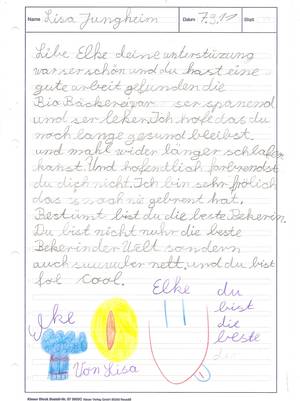 Name Lisa Jungheim Datum 7.3.11 Blatt
Libe Elke deine unterstüzung
war ser schön und du hast eine
gute arbeit gefunden die
Bio Bäckerei war ser spanend
und ser leken. Ich hofe das du
noch lange gesund bleibst.
und mahl wider länger schlafen
kanst. Und hofendlich farbrendst
du dich nicht. Ich bin sehr frölich
das is noch nie gebrent hat.
Bestimt bist du die beste Bekerin.
Du bist nicht nuhr die beste
Bekerin der Welt sondern
auch suuuuber nett. und du bist
fol cool.
Elke
du
bist
die
beste
Elke
Von Lisa